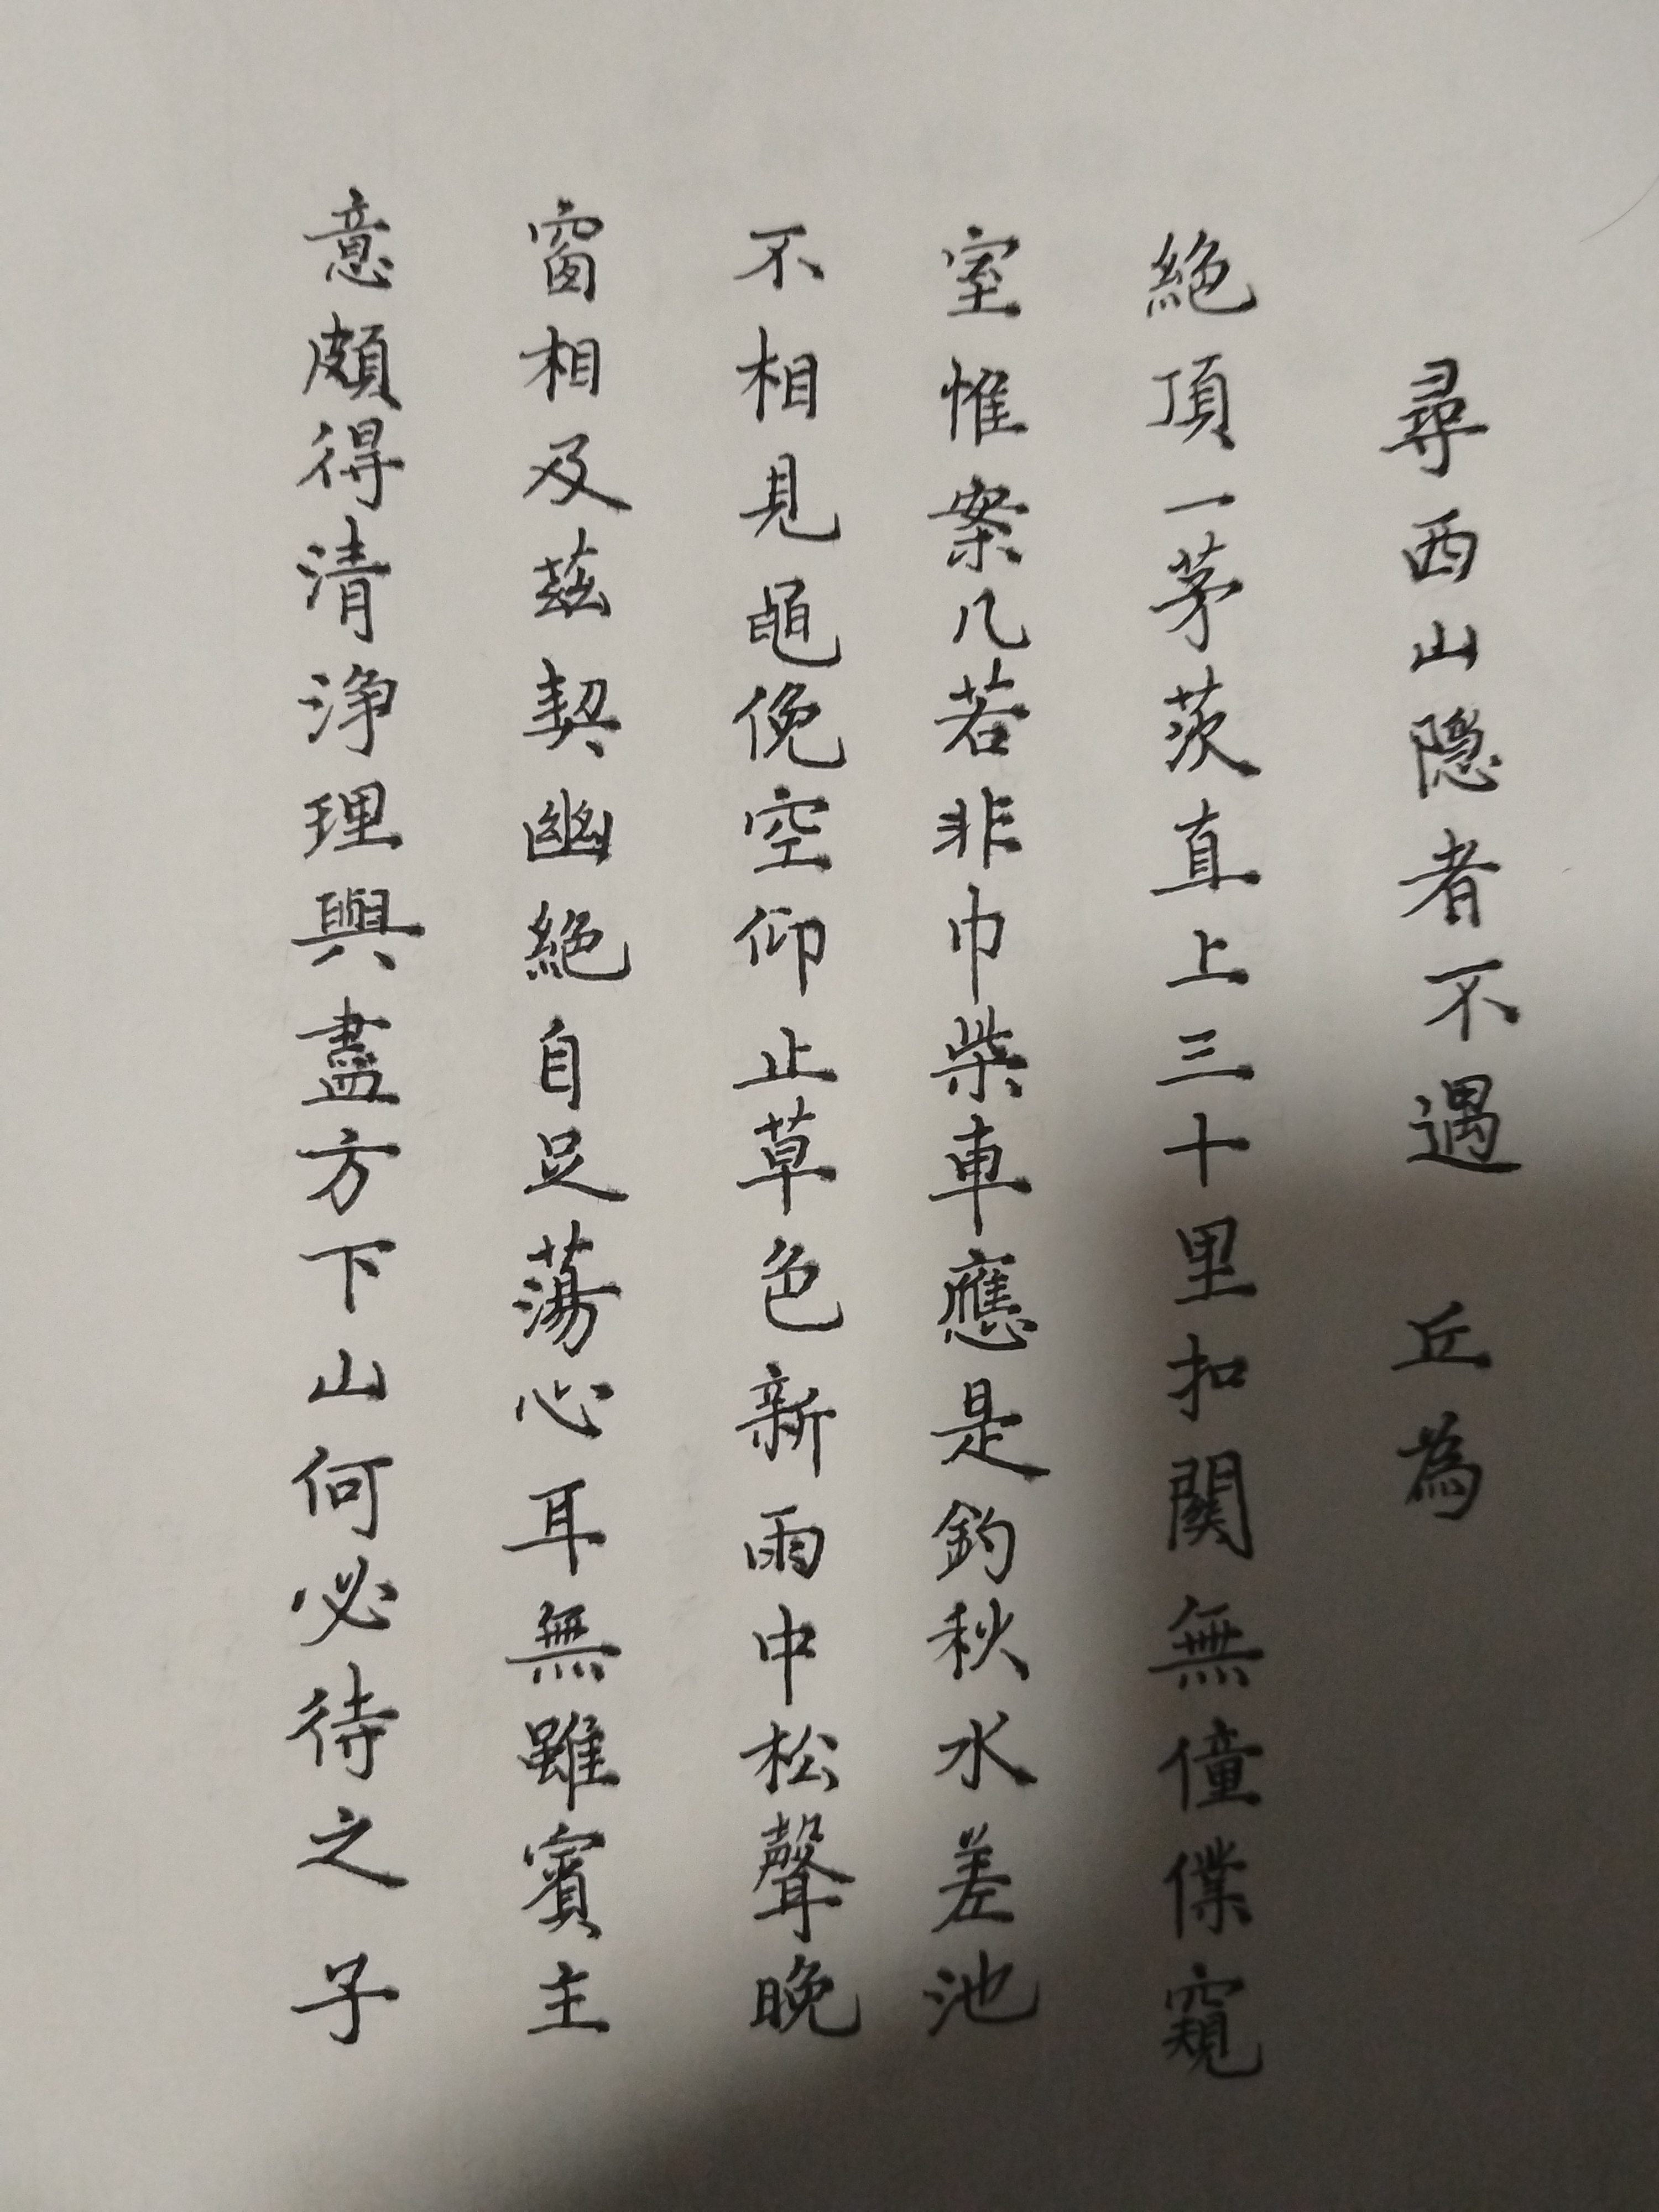 尋西山隱者不遇 丘為
絕頂一茅茨直上三十里扣關無僮僕窺
室惟案几若非巾柴車應是釣秋水差池
不相見黽俛空仰止草色新雨中松聲晚
窗相及茲契幽絕自足蕩心耳無雖賓主
意頗得清淨理興盡方下山何必待之子